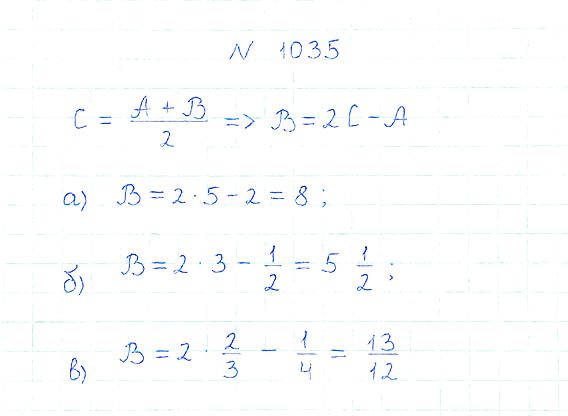 N 1035
C = (A + B)/2 => B = 2C - A
а) B = 2 · 5 - 2 = 8 ;
б) B = 2 · 3 - 1/2 = 5 1/2 ;
в) B = 2 · 2/3 - 1/4 = 13/12